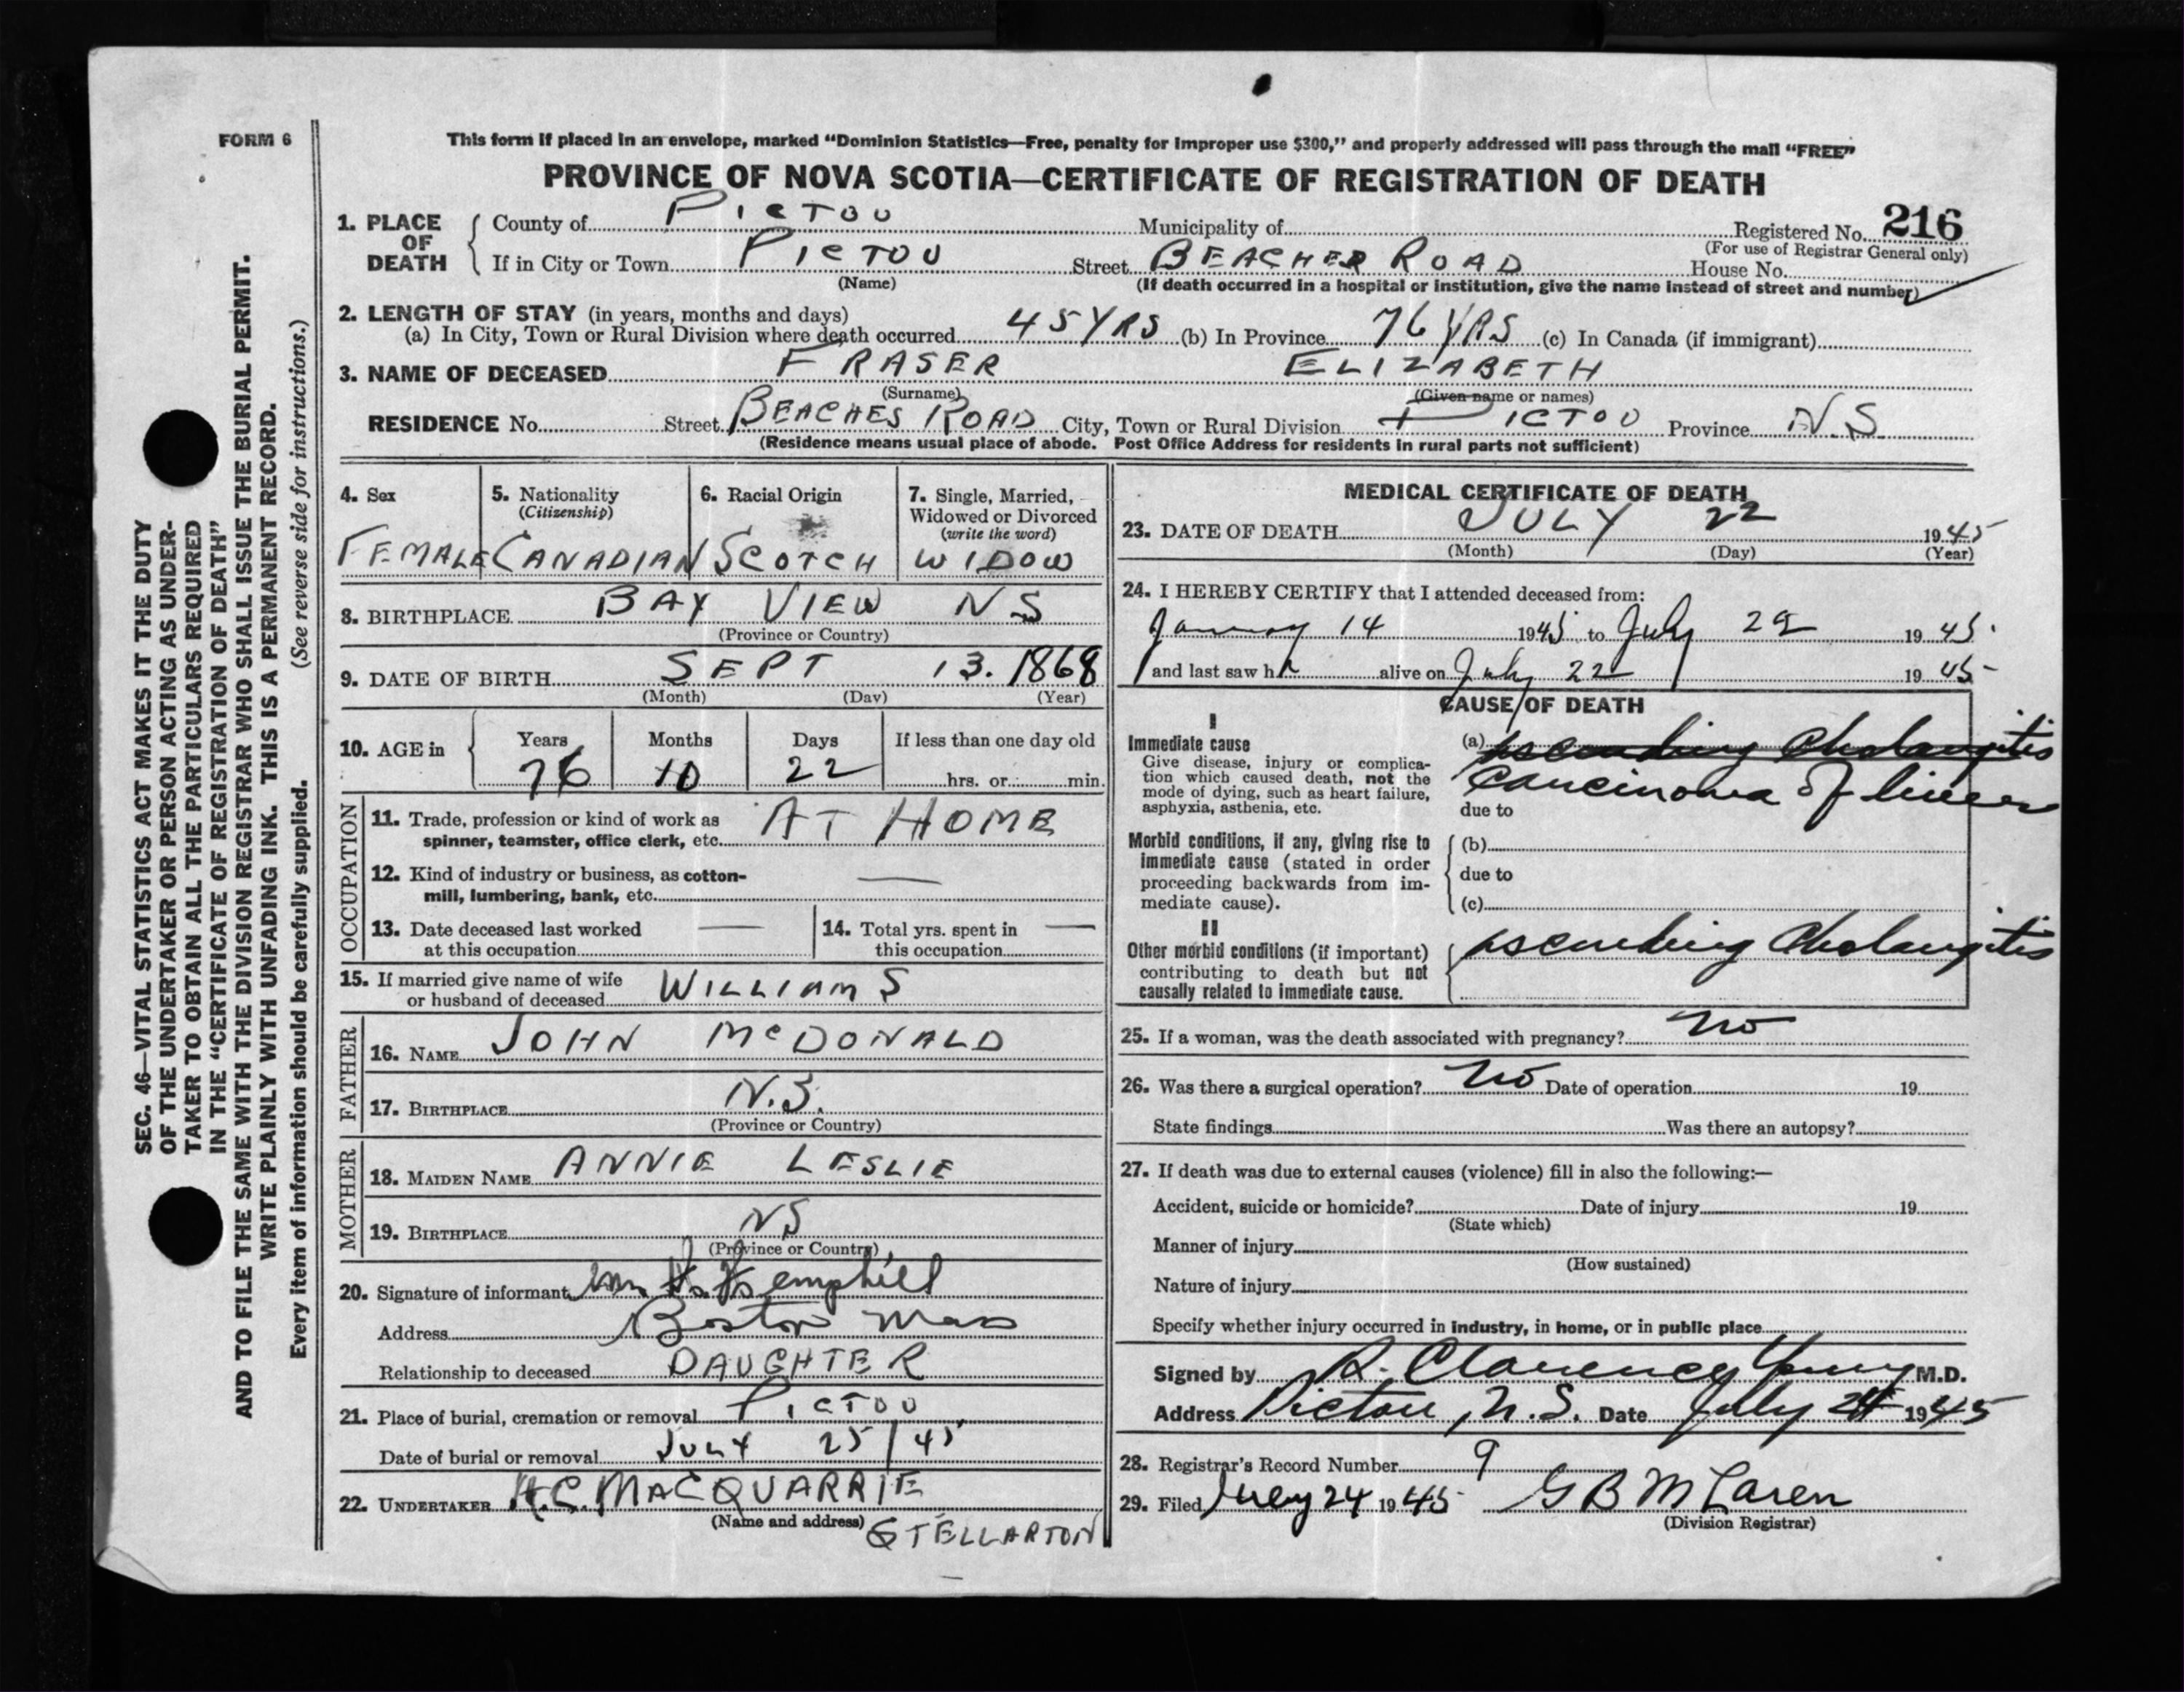 FORM 6
This form if placed in an envelope, marked "Dominion Statistics—Free, penalty for improper use $300," and properly addressed will pass through the mail "FREE"
PROVINCE OF NOVA SCOTIA—CERTIFICATE OF REGISTRATION OF DEATH
1. PLACE OF DEATH { County of PICTOU Municipality of Registered No. 216
(For use of Registrar General only)
If in City or Town PICTOU Street BEACHES ROAD House No.
(Name) (If death occurred in a hospital or institution, give the name instead of street and number)
2. LENGTH OF STAY (in years, months and days)
(a) In City, Town or Rural Division where death occurred 45 YRS (b) In Province 76 YRS (c) In Canada (if immigrant)
3. NAME OF DECEASED FRASER ELIZABETH
(Surname) (Given name or names)
RESIDENCE No. Street BEACHES ROAD City, Town or Rural Division PICTOU Province N.S.
(Residence means usual place of abode. Post Office Address for residents in rural parts not sufficient)
SEC. 46—VITAL STATISTICS ACT MAKES IT THE DUTY
OF THE UNDERTAKER OR PERSON ACTING AS UNDER-
TAKER TO OBTAIN ALL THE PARTICULARS REQUIRED
IN THE "CERTIFICATE OF REGISTRATION OF DEATH"
AND TO FILE THE SAME WITH THE DIVISION REGISTRAR WHO SHALL ISSUE THE BURIAL PERMIT.
WRITE PLAINLY WITH UNFADING INK. THIS IS A PERMANENT RECORD.
Every item of information should be carefully supplied. (See reverse side for instructions.)
4. Sex
FEMALE
5. Nationality
(Citizenship)
CANADIAN
6. Racial Origin
SCOTCH
7. Single, Married,
Widowed or Divorced
(write the word)
WIDOW
8. BIRTHPLACE BAY VIEW NS
(Province or Country)
9. DATE OF BIRTH SEPT 13. 1868
(Month) (Day) (Year)
10. AGE in { Years Months Days If less than one day old
76 10 22 hrs. or min.
OCCUPATION
11. Trade, profession or kind of work as AT HOME
spinner, teamster, office clerk, etc.
12. Kind of industry or business, as cotton-
mill, lumbering, bank, etc. —
13. Date deceased last worked —
at this occupation
14. Total yrs. spent in —
this occupation
15. If married give name of wife
or husband of deceased WILLIAM S
FATHER
16. NAME JOHN McDONALD
17. BIRTHPLACE N.S.
(Province or Country)
MOTHER
18. MAIDEN NAME ANNIE LESLIE
19. BIRTHPLACE NS
(Province or Country)
20. Signature of informant Hemphill
Address Boston Mass
Relationship to deceased DAUGHTER
21. Place of burial, cremation or removal PICTOU
Date of burial or removal JULY 25/45
22. UNDERTAKER H.C. MACQUARRIE
(Name and address) STELLARTON
MEDICAL CERTIFICATE OF DEATH
23. DATE OF DEATH JULY 22 1945
(Month) (Day) (Year)
24. I HEREBY CERTIFY that I attended deceased from:
January 14 1945 to July 22 1945.
and last saw her alive on July 22 1945
CAUSE OF DEATH
I
Immediate cause
Give disease, injury or complica-
tion which caused death, not the
mode of dying, such as heart failure,
asphyxia, asthenia, etc.
(a) ascending Cholangitis
Carcinoma of liver
due to
Morbid conditions, if any, giving rise to
immediate cause (stated in order
proceeding backwards from im-
mediate cause).
(b)
due to
(c)
II
Other morbid conditions (if important)
contributing to death but not
causally related to immediate cause.
ascending Cholangitis
25. If a woman, was the death associated with pregnancy? no
26. Was there a surgical operation? no Date of operation 19
State findings Was there an autopsy?
27. If death was due to external causes (violence) fill in also the following:—
Accident, suicide or homicide? Date of injury 19
(State which)
Manner of injury
(How sustained)
Nature of injury
Specify whether injury occurred in industry, in home, or in public place
Signed by R. Clarence Young M.D.
Address Pictou, N.S. Date July 24 1945
28. Registrar's Record Number 9
29. Filed July 24 1945 G B McLaren
(Division Registrar)